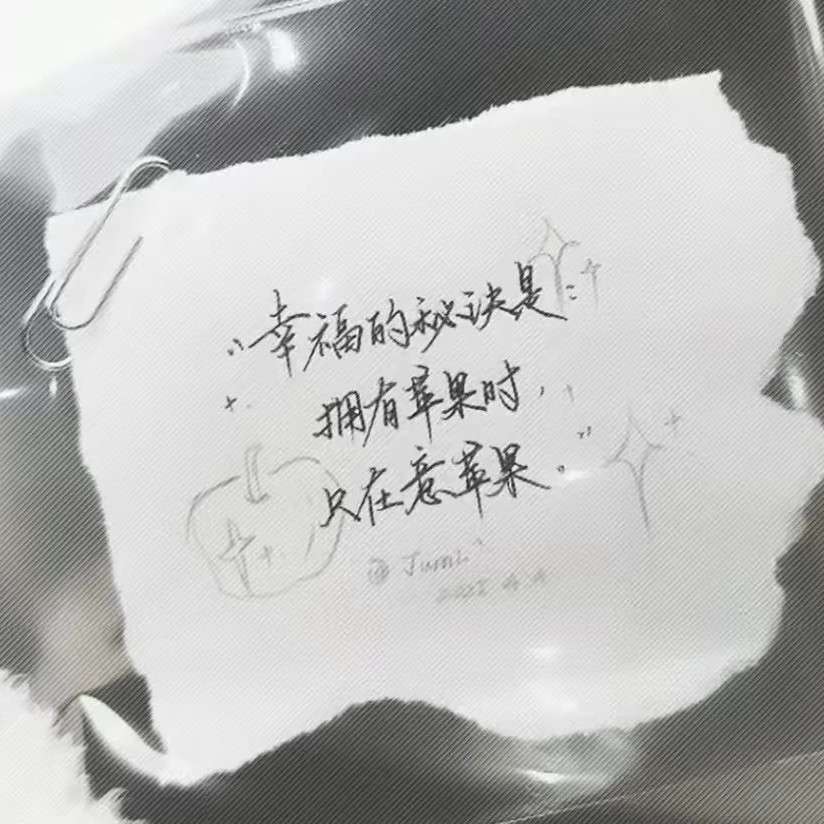 “幸福的秘诀是
拥有苹果时，
只在意苹果。”